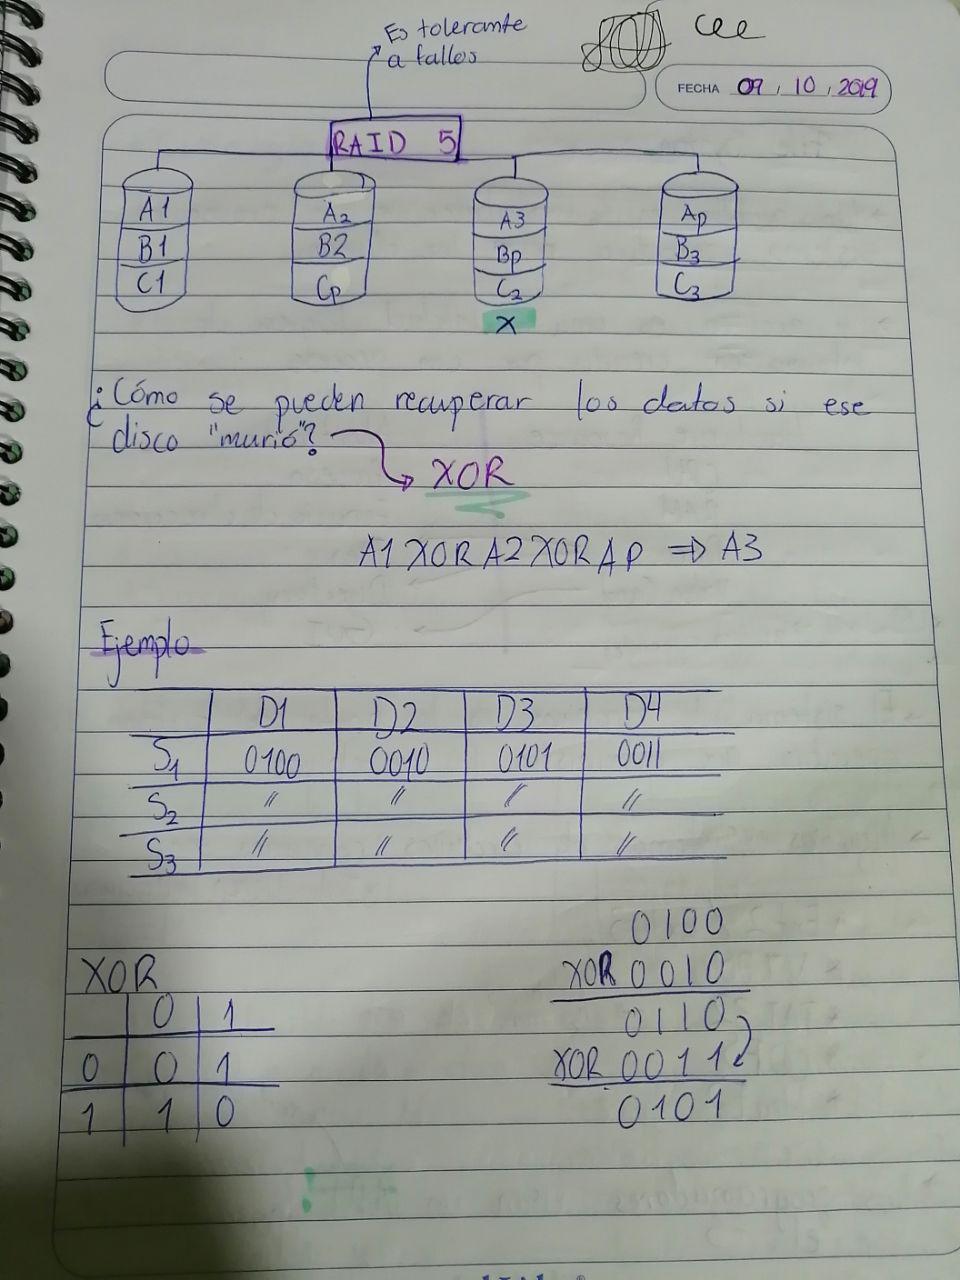 Es tolerante
a fallos
cee
FECHA 09, 10, 2019
RAID 5
A1 A2 A3 Ap
B1 B2 Bp B3
C1 Cp C2 C3
X
¿Cómo se pueden recuperar los datos si ese
disco "murió"?
XOR
A1 XOR A2 XOR Ap ⇒ A3
Ejemplo
D1 D2 D3 D4
S1 0100 0010 0101 0011
S2 〃 〃 〃 〃
S3 〃 〃 〃 〃
XOR
0 1
0 0 1
1 1 0
0100
XOR 0010
0110
XOR 0011
0101